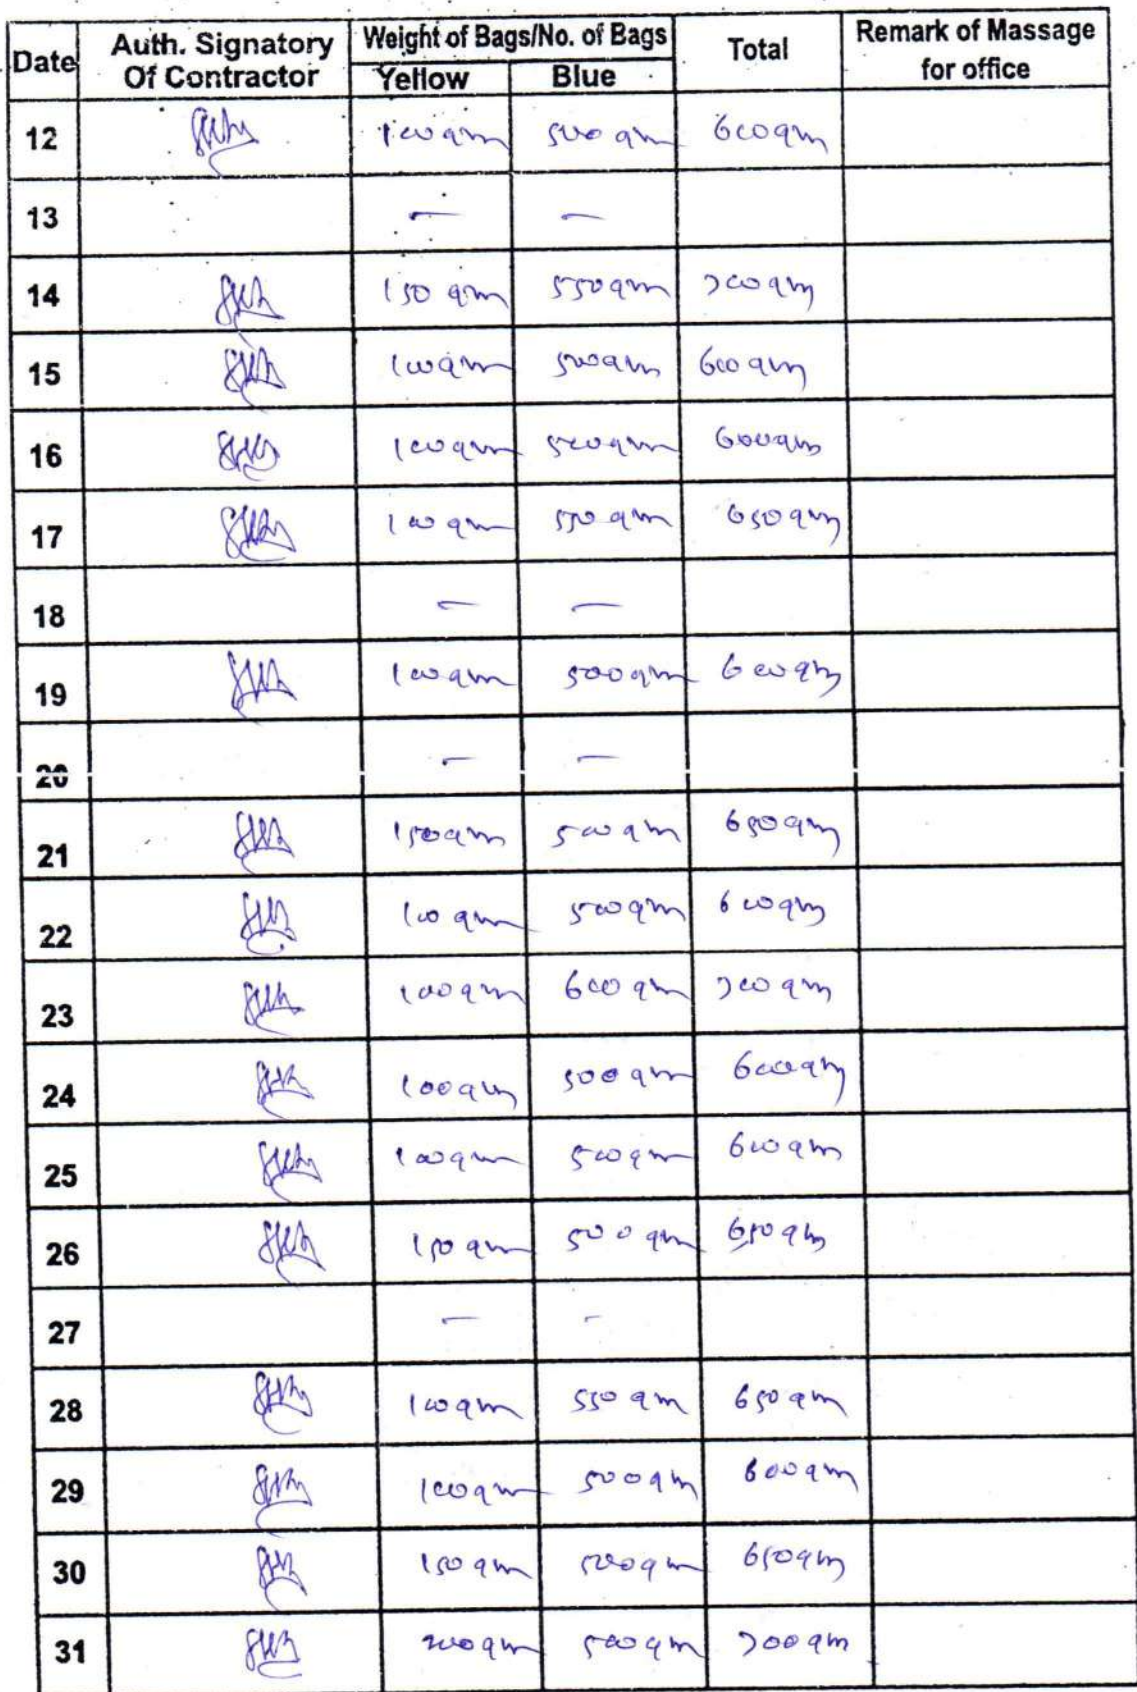 Date Auth. Signatory Of Contractor Weight of Bags/No. of Bags Total Remark of Massage for office
Yellow Blue
12 100 gm 500 gm 600 gm
13 — —
14 150 gm 550 gm 700 gm
15 100 gm 500 gm 600 gm
16 100 gm 500 gm 600 gm
17 100 gm 550 gm 650 gm
18 — —
19 100 gm 500 gm 600 gm
20 — —
21 150 gm 500 gm 650 gm
22 100 gm 500 gm 600 gm
23 100 gm 600 gm 700 gm
24 100 gm 500 gm 600 gm
25 100 gm 500 gm 600 gm
26 150 gm 500 gm 650 gm
27 — -
28 100 gm 550 gm 650 gm
29 100 gm 500 gm 600 gm
30 150 gm 500 gm 650 gm
31 200 gm 500 gm 700 gm